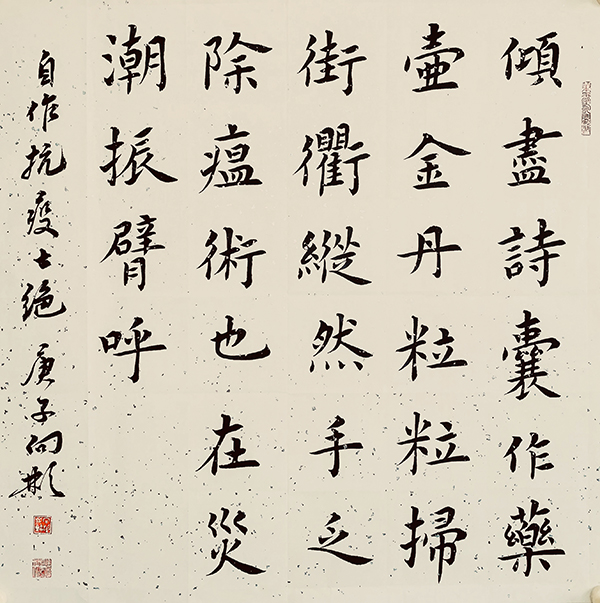 傾盡詩囊作藥
壺金丹粒粒掃
街衢縱然手乏
除瘟術也在災
潮振臂呼
自作抗疫七绝 庚子向彬